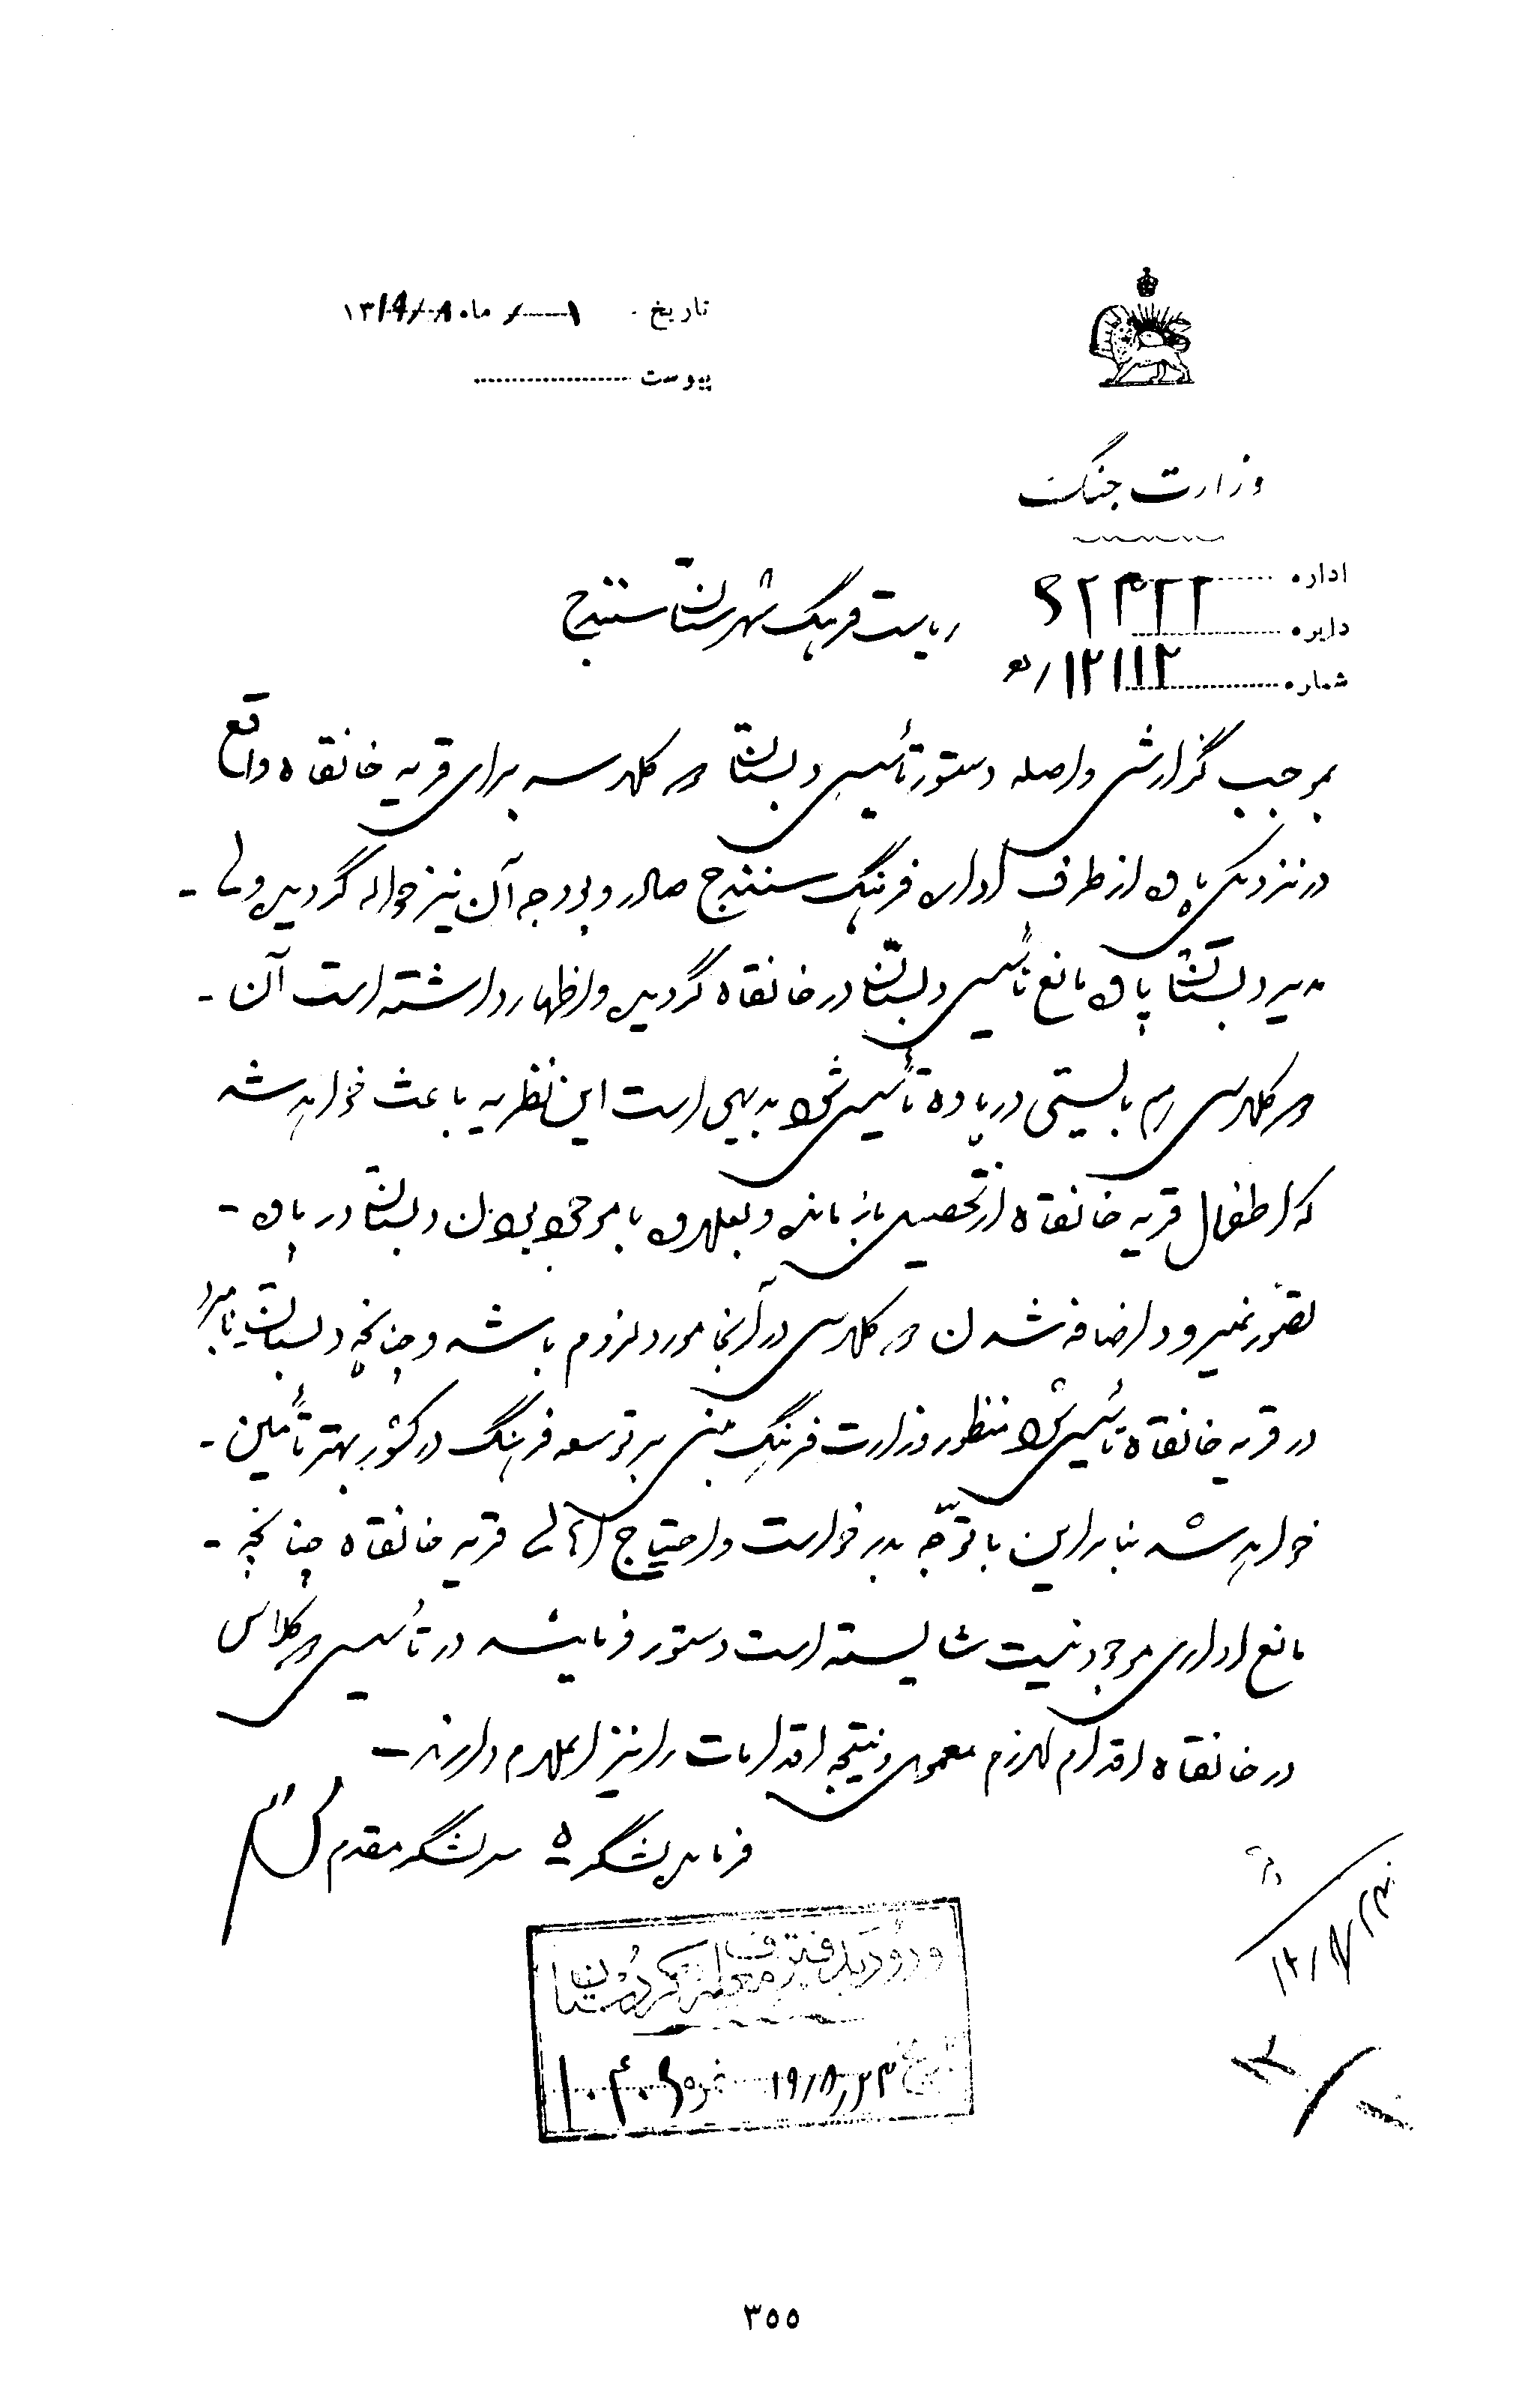 تاریخ ۱ ماه ۸ / ۱۳۱۹
پیوست
وزارت جنگ
اداره
دایره ۲۳۲۲
شماره ۱۲۱۱۲
ریاست فرهنگ شهرستان سنندج
بموجب گزارش واصله دستور تأسیس دبستان دو کلاسه برای قریه خانقاه واقع
در نزدیکی پاوه از طرف اداره فرهنگ سنندج صادر و بودجه آن نیز حواله گردیده ولی -
مدیر دبستان پاوه مانع تأسیس دبستان در خانقاه گردیده و اظهار داشته است آن -
دو کلاس هم بایستی در پاوه تأسیس شود بدیهی است این نظریه باعث خواهد شد
که اطفال قریه خانقاه از تحصیل باز مانده و بعلاوه با موجود بودن دبستان در پاوه -
تصور نمیرود اضافه شدن دو کلاس در آنجا مورد لزوم باشد و چنانچه دبستان نامبرده
در قریه خانقاه تأسیس شود منظور وزارت فرهنگ مبنی بر توسعه فرهنگ در کشور بهتر تأمین -
خواهد شد بنابراین با توجه بدرخواست و احتیاج اهالی قریه خانقاه چنانچه -
مانع اداری موجود نیست شایسته است دستور فرمایند در تأسیس دو کلاس
در خانقاه اقدام لازم معمول و نتیجه اقدامات را نیز اعلام دارند -
فرمانده لشگر ۵ سرلشگر مقدم
ورود بدفتر معارف کردستان
تاریخ ۱۹/۸/۲۳ نمره
۳۵۵